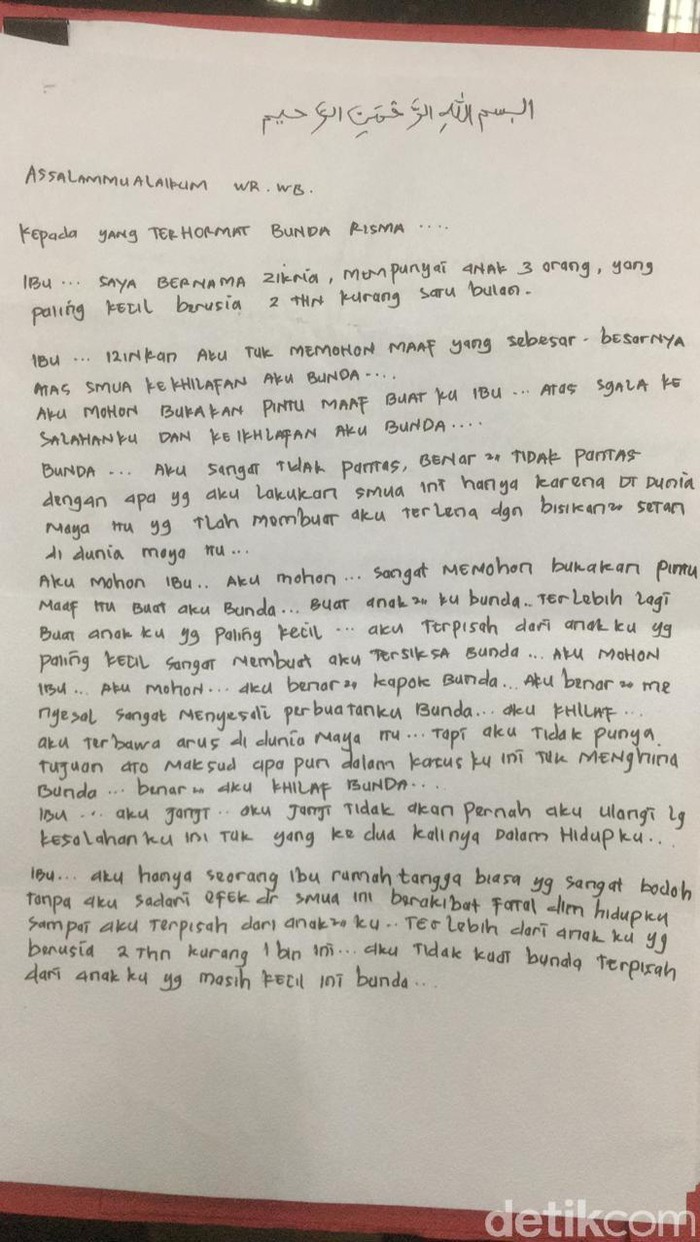 البسم الله الرَّحْمَنِ الرَّحيم
ASSALAMMUALAIKUM WR. WB.
Kepada YANG TERHORMAT BUNDA RISMA ....
IBU ... SAYA BERNAMA ZIKRIA, MEMPUNYAI ANAK 3 orang, yang
paling KECIL berusia 2 THN kurang satu bulan.
IBU ... IZINKAN AKU TUK MEMOHON MAAF yang sebesar - besarNYA
ATAS SMUA KEKHILAFAN AKU BUNDA....
AKU MOHON BUKAKAN PINTU MAAF BUAT KU IBU ... ATAS SGALA KE
SALAHANKU DAN KEIKHLAFAN AKU BUNDA....
BUNDA ... AKU sangat TIDAK pantas, BENAR 2x TIDAK PANTAS
dengan apa yg aku lakukan smua ini hanya karena DI Dunia
Maya ITU yg TLah membuat aku terlena dgn bisikan2x setan
di dunia maya ITU...
Aku Mohon IBU.. Aku mohon... sangat MEMOHON bukakan pintu
Maaf ITU Buat aku Bunda... Buat anak 2x ku bunda.. Terlebih lagi
Buat anak ku yg paling kecil ... aku Terpisah dari anak ku yg
paling KECIL sangat membuat aku TERSIKSA Bunda ... AKU MOHON
IBU... AKU Mohon... aku benar 2x kapok Bunda... Aku benar 2x me
ngesal sangat Menyesali perbuatanku Bunda... aku KHILAF...
aku terbawa arus di dunia Maya ITU... Tapi aku Tidak punya
Tujuan ATO Maksud apa pun dalam kasus ku ini TUK MENghina
Bunda ... benar 2x aku KHILAF BUNDA....
IBU ... aku janji .. aku janji Tidak akan pernah aku ulangi lg
kesalahan ku ini TUK yang ke dua kalinya Dalam Hidupku...
IBU... aku hanya seorang ibu rumah tangga biasa yg sangat bodoh
tanpa aku sadari efek dr smua ini berakibat Fatal dlm hidupku
sampai aku Terpisah dari anak2x ku.. Terlebih dari anak ku yg
berusia 2 Thn kurang 1 bln ini... aku Tidak kuat bunda terpisah
dari anak ku yg masih kecil ini bunda...
detikcom